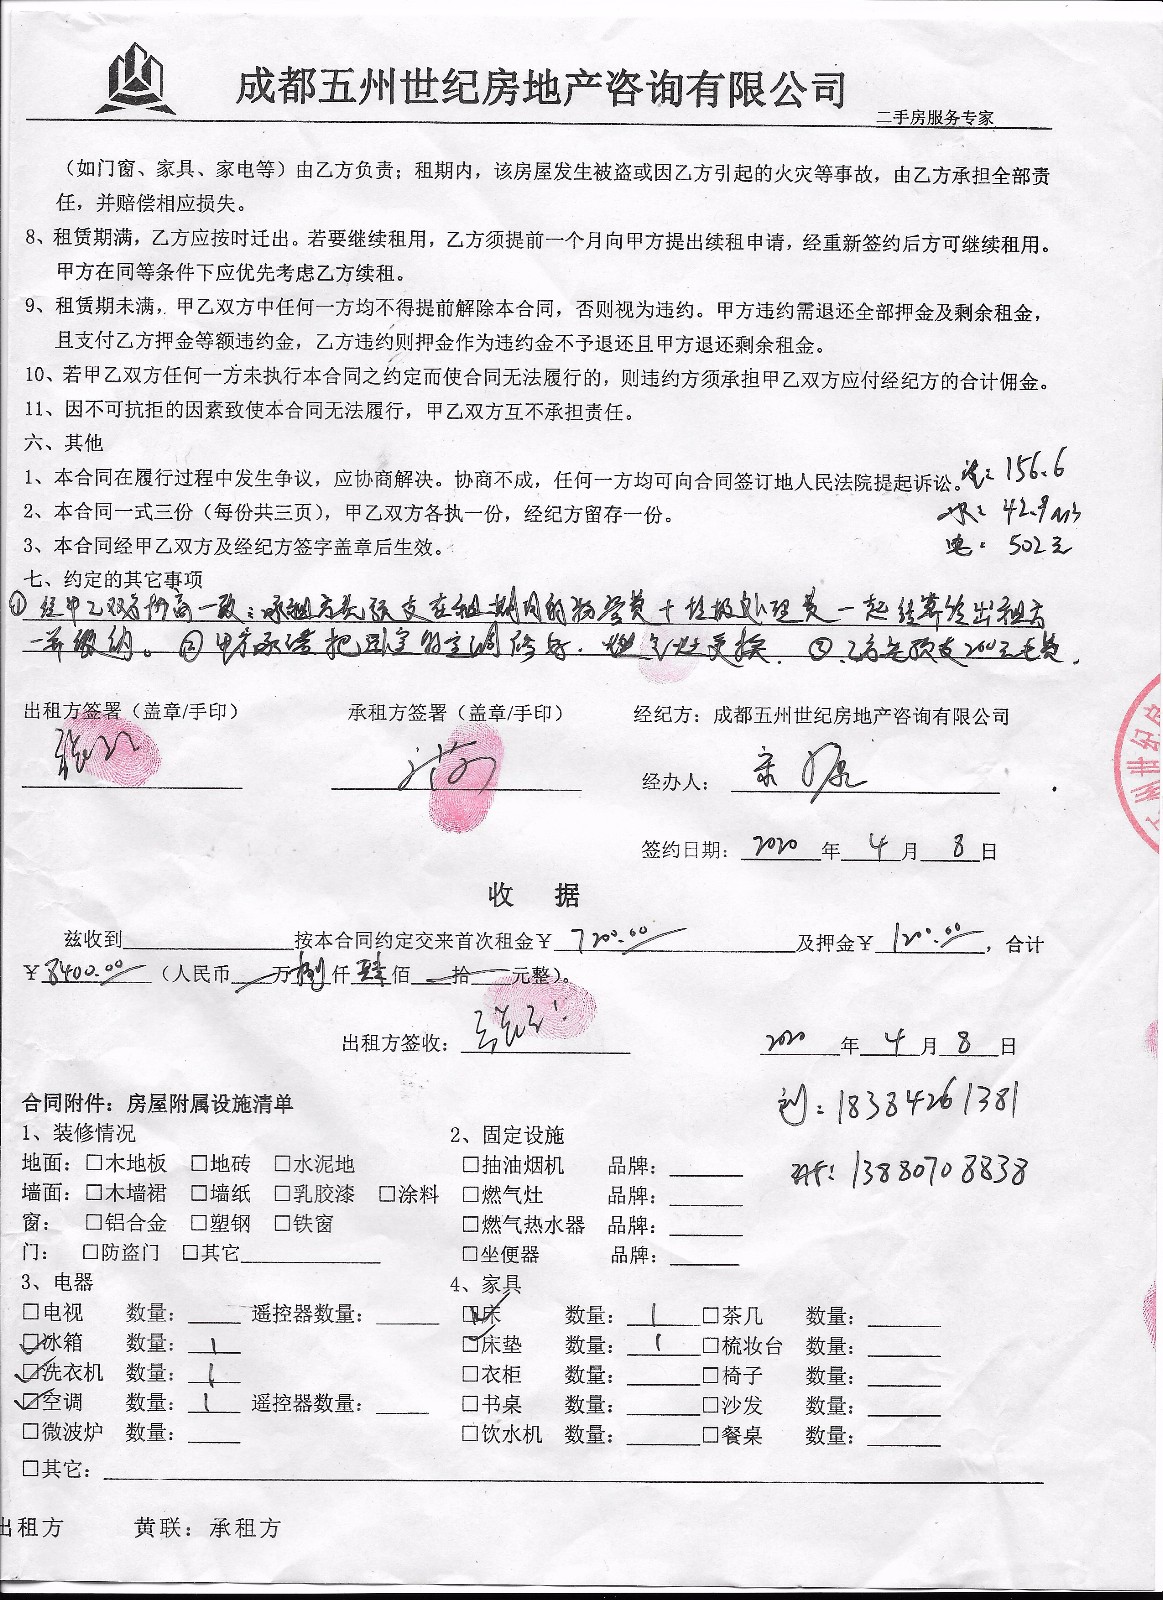 成都五州世纪房地产咨询有限公司
二手房服务专家
（如门窗、家具、家电等）由乙方负责；租期内，该房屋发生被盗或因乙方引起的火灾等事故，由乙方承担全部责
任，并赔偿相应损失。
8、租赁期满，乙方应按时迁出。若要继续租用，乙方须提前一个月向甲方提出续租申请，经重新签约后方可继续租用。
甲方在同等条件下应优先考虑乙方续租。
9、租赁期未满，甲乙双方中任何一方均不得提前解除本合同，否则视为违约。甲方违约需退还全部押金及剩余租金，
且支付乙方押金等额违约金，乙方违约则押金作为违约金不予退还且甲方退还剩余租金。
10、若甲乙双方任何一方未执行本合同之约定而使合同无法履行的，则违约方须承担甲乙双方应付经纪方的合计佣金。
11、因不可抗拒的因素致使本合同无法履行，甲乙双方互不承担责任。
六、其他
1、本合同在履行过程中发生争议，应协商解决。协商不成，任何一方均可向合同签订地人民法院提起诉讼。
：156.6
2、本合同一式三份（每份共三页），甲乙双方各执一份，经纪方留存一份。
水：42.9m³
3、本合同经甲乙双方及经纪方签字盖章后生效。
电：502元
七、约定的其它事项
①经甲乙双方协商一致：承租方先预支在租期内的物管费+垃圾处理费一起结算给出租方
一并缴纳。②甲方承诺把卧室的空调修好，燃气灶更换。③乙方先预支200元电费。
出租方签署（盖章/手印） 承租方签署（盖章/手印） 经纪方：成都五州世纪房地产咨询有限公司
经办人：宋源
签约日期：2020年4月8日
收 据
兹收到 按本合同约定交来首次租金￥7200.00 及押金￥1200.00，合计
￥8400.00（人民币 万捌仟肆佰 拾 元整）。
出租方签收： 2020年4月8日
刘：18384261381
13880708838
合同附件：房屋附属设施清单
1、装修情况 2、固定设施
地面：□木地板 □地砖 □水泥地 □抽油烟机 品牌：
墙面：□木墙裙 □墙纸 □乳胶漆 □涂料 □燃气灶 品牌：
窗： □铝合金 □塑钢 □铁窗 □燃气热水器 品牌：
门： □防盗门 □其它 □坐便器 品牌：
3、电器 4、家具
□电视 数量： 遥控器数量： ☑床 数量：1 □茶几 数量：
☑冰箱 数量：1 ☑床垫 数量：1 □梳妆台 数量：
☑洗衣机 数量：1 □衣柜 数量： □椅子 数量：
☑空调 数量：1 遥控器数量： □书桌 数量： □沙发 数量：
□微波炉 数量： □饮水机 数量： □餐桌 数量：
□其它：
出租方 黄联：承租方
州世纪房